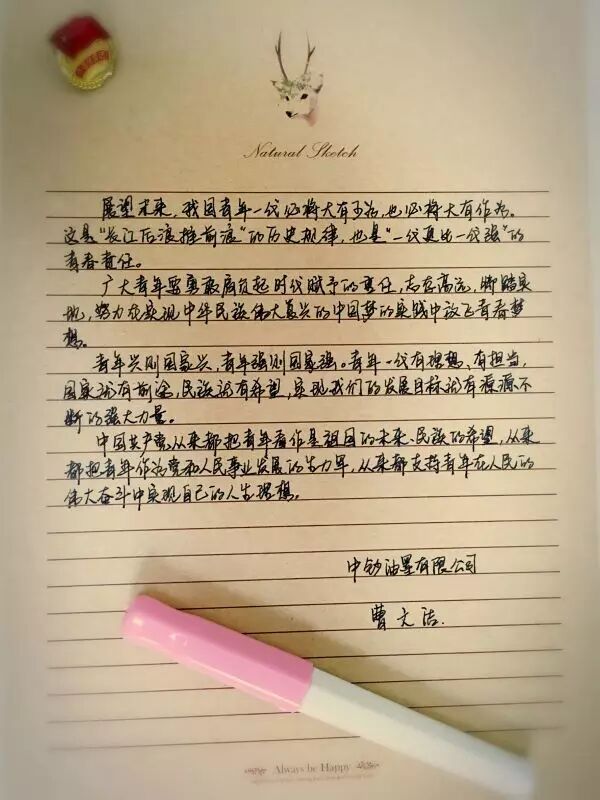 Natural Sketch
展望未来，我国青年一代必将大有可为，也必将大有作为。
这是“长江后浪推前浪”的历史规律，也是“一代更比一代强”的
青春责任。
广大青年要勇敢肩负起时代赋予的重任，志存高远，脚踏实
地，努力在实现中华民族伟大复兴的中国梦的实践中放飞青春梦
想。
青年兴则国家兴，青年强则国家强。青年一代有理想、有担当，
国家就有前途，民族就有希望，实现我们的发展目标就有源源不
断的强大力量。
中国共产党从来都把青年看作是祖国的未来、民族的希望，从来
都把青年作为党和人民事业发展的生力军，从来都支持青年在人民的
伟大奋斗中实现自己的人生理想。
中钞油墨有限公司
曹文洁
Always be Happy